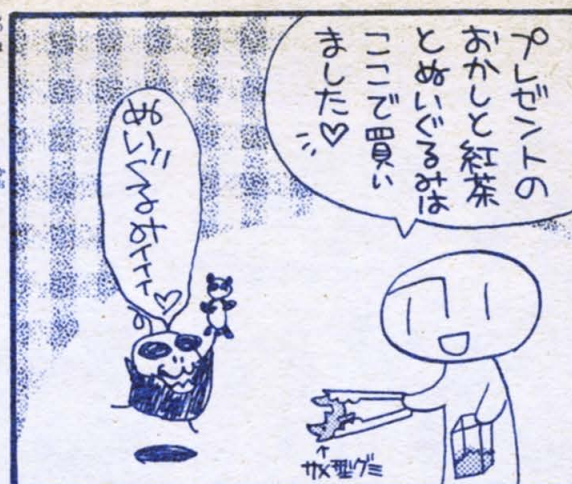 プレゼントの
おかしと紅茶
とぬいぐるみは
ここで買い
ました♡
ぬいぐるみィィィ♡
サメ型グミ